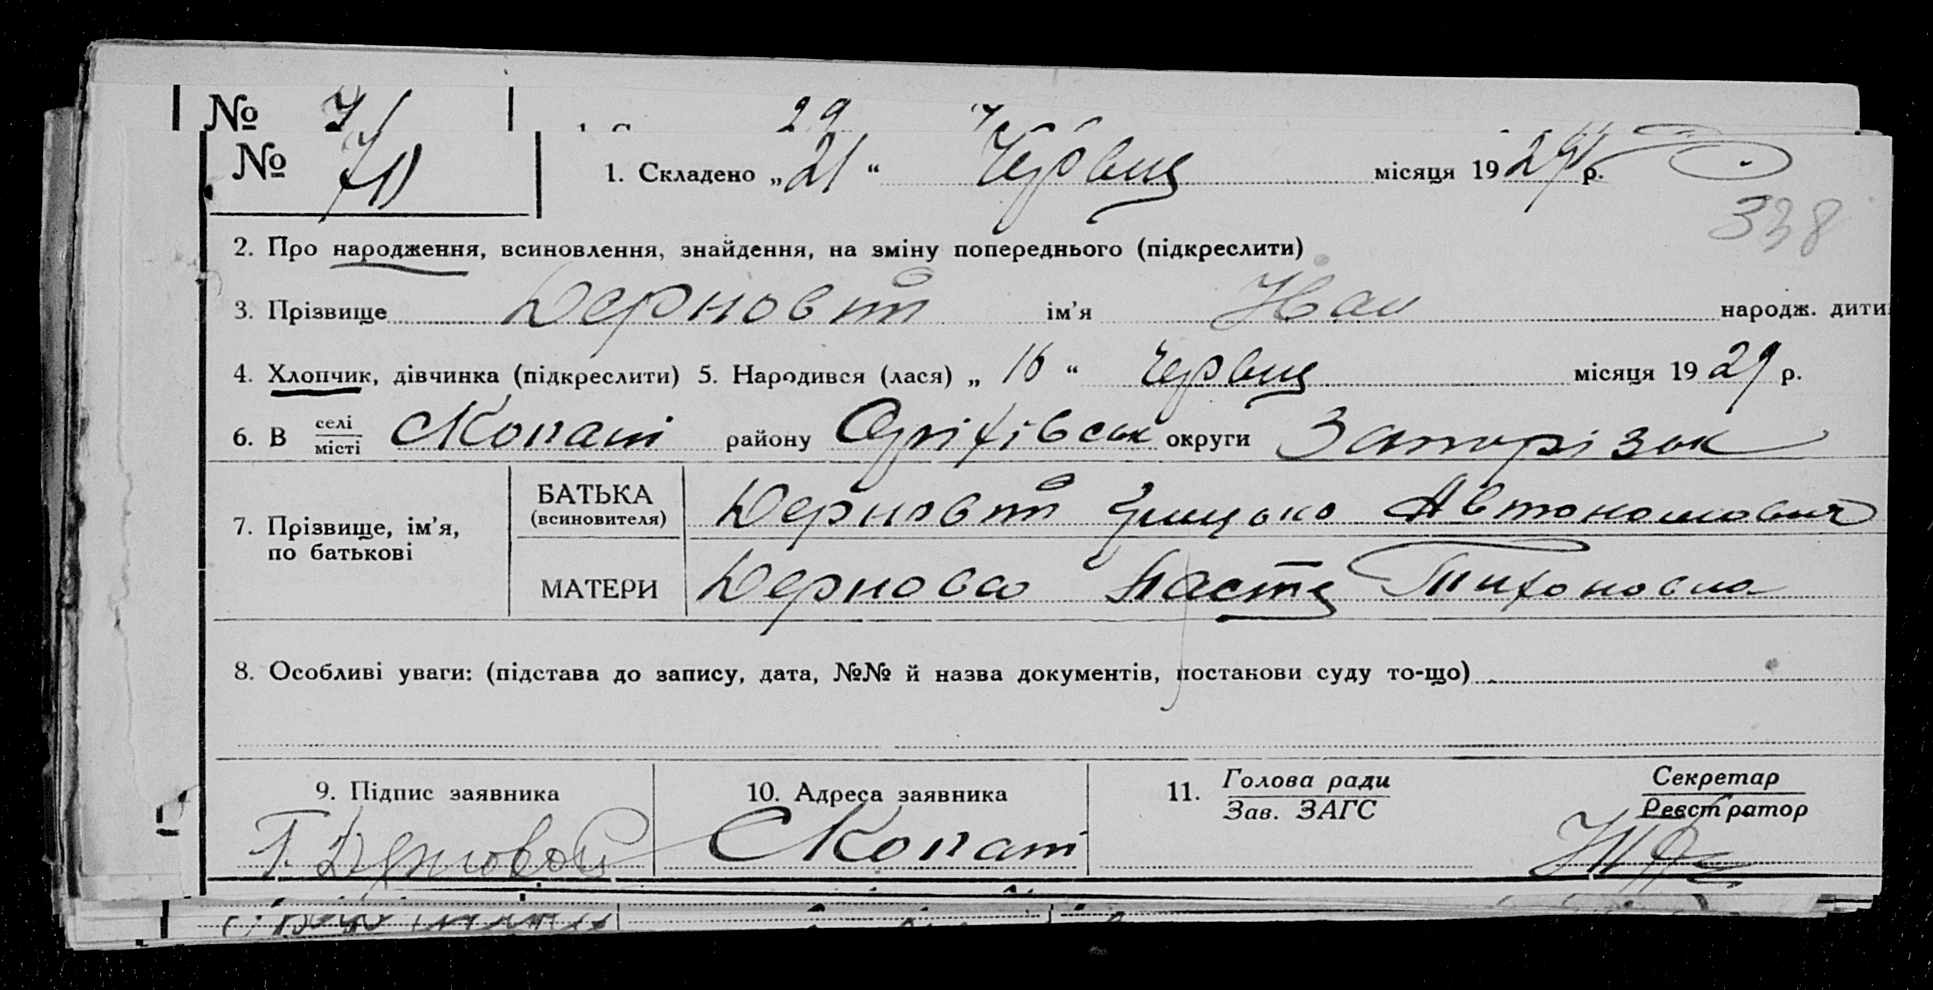 №
29
№ 70 1. Складено „21“ Червця місяця 1929 р.
338
2. Про народження, всиновлення, знайдення, на зміну попереднього (підкреслити)
3. Прізвище Дерновой ім'я Иван народж. дити
4. Хлопчик, дівчинка (підкреслити) 5. Народився (лася) „16“ Червця місяця 1929 р.
6. В селі/місті Копані району Оріхівськ округи Запорізьк
7. Прізвище, ім'я, по батькові
БАТЬКА (всиновителя) Дерновой Грицько Автономович
МАТЕРИ Дернова Настя Тихоновна
8. Особливі уваги: (підстава до запису, дата, №№ й назва документів, постакови суду то-що)
9. Підпис заявника 10. Адреса заявника 11. Голова ради/Зав. ЗАГС Секретар/Реєстратор
Г. Дерновой Копані